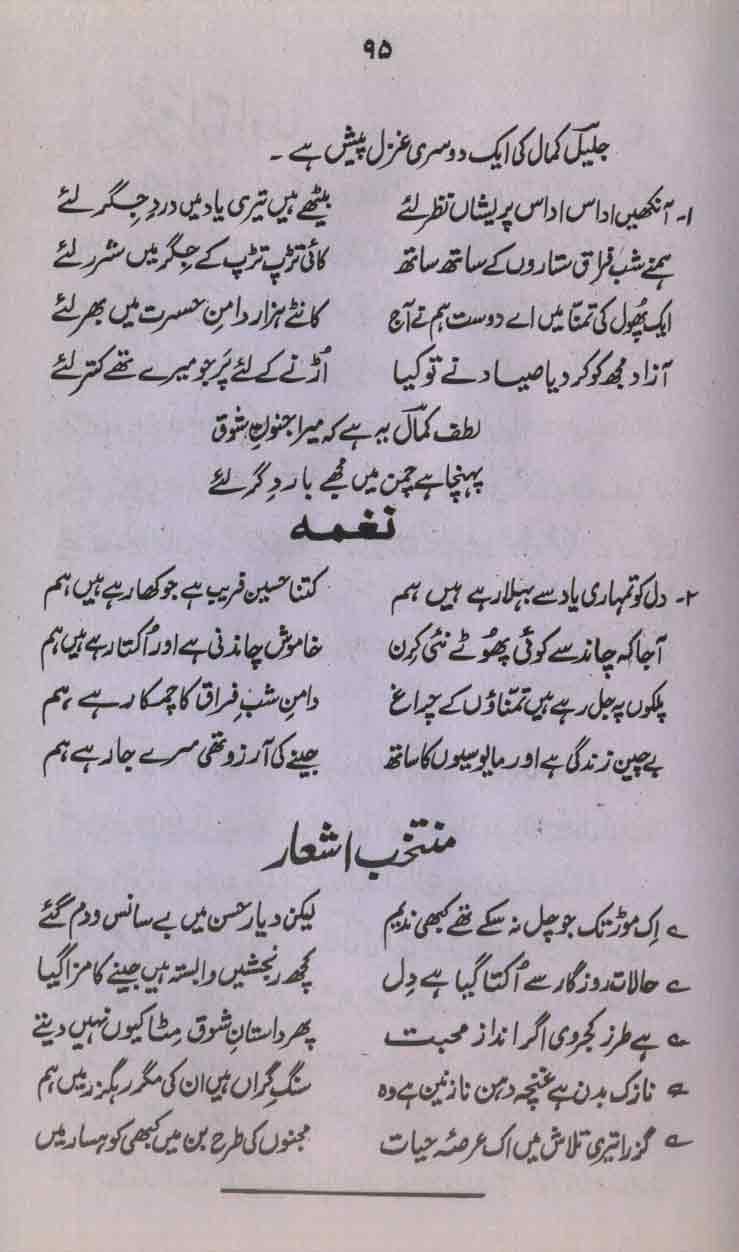 ۹۵
جلیل کمال کی ایک دوسری غزل پیش ہے ۔
۱- آنکھیں اداس اداس پریشاں نظر لئے بیٹھے ہیں تیری یاد میں دردِ جگر لئے
ہمنے شبِ فراق ستاروں کے ساتھ ساتھ کاٹی تڑپ تڑپ کے جگر میں شرر لئے
ایک پھول کی تمنّا میں اے دوست ہم نے آج کانٹے ہزار دامنِ حسرت میں بھر لئے
آزاد مجھ کو کر دیا صیاد نے تو کیا اُڑنے کے لئے پَر جو میرے تھے کتر لئے
لطف کمال یہ ہے کہ میرا جنونِ شوق
پہنچا ہے چمن میں مجھے بار دگر لئے
نغمہ
۲- دل کو تمہاری یاد سے بہلا رہے ہیں ہم کتنا حسین فریب ہے جو کھا رہے ہیں ہم
آجا کہ چاند سے کوئی پھوٹے نئی کِرن خاموش چاندنی ہے اور اُکتا رہے ہیں ہم
پلکوں پہ جل رہے ہیں تمنّاؤں کے چراغ دامنِ شبِ فراق کا چمکا رہے ہم
بے چین زندگی ہے اور مایوسیوں کا ساتھ جینے کی آرزو تھی مرے جا رہے ہم
منتخب اشعار
؎ اِک موڑ تک جو چل نہ سکے تھے کبھی ندیم لیکن دیار حسن میں بے سانس و دم گئے
؎ حالات روزگار سے اُکتا گیا ہے دِل کچھ رنجشیں وابستہ ہیں جینے کا مزا گیا
؎ ہے طرز کجروی اگر انداز محبت پھر داستانِ شوق مِٹا کیوں نہیں دیتے
؎ نازک بدن ہے غنچہ دہن نازنین ہے وہ سنگِ گراں ہیں ان کی مگر رہگزر میں ہم
؎ گزرا تیری تلاش میں اک عرصۂ حیات مجنوں کی طرح بن میں کبھی کوہسار میں